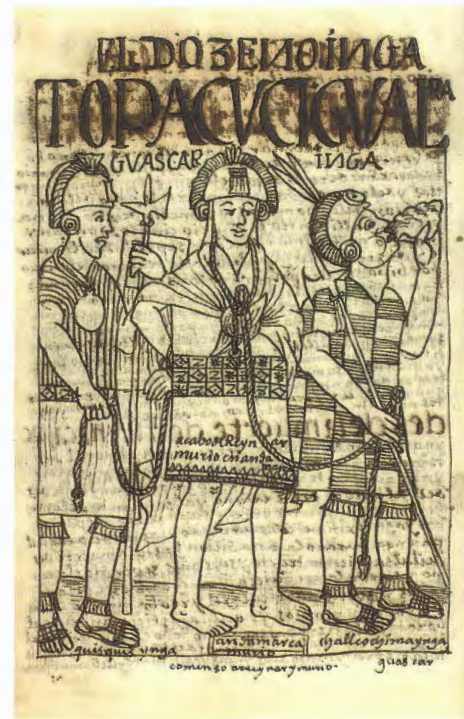 EL DOZENO INGA
TOPA CVCI GVAL
PA
GVASCAR INGA
acabo el Reyn ar
murio en anda
marca
quisquis ynga
andamarca
murio
challcochima ynga
comenso a reynar y murio
guascar